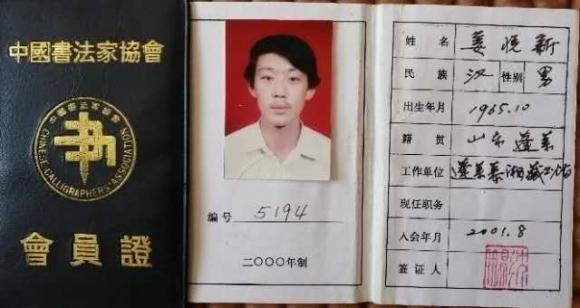 中國書法家協會
中國書法家協會
CHINESE CALLIGRAPHERS' ASSOCIATION
會員證
编号 5194
二〇〇〇年制
姓名 姜悦新
民族 汉 性别 男
出生年月 1965.10
籍贯 山东蓬莱
工作单位 蓬莱慕湘藏书馆
现任职务
入会年月 2001.8
签证人